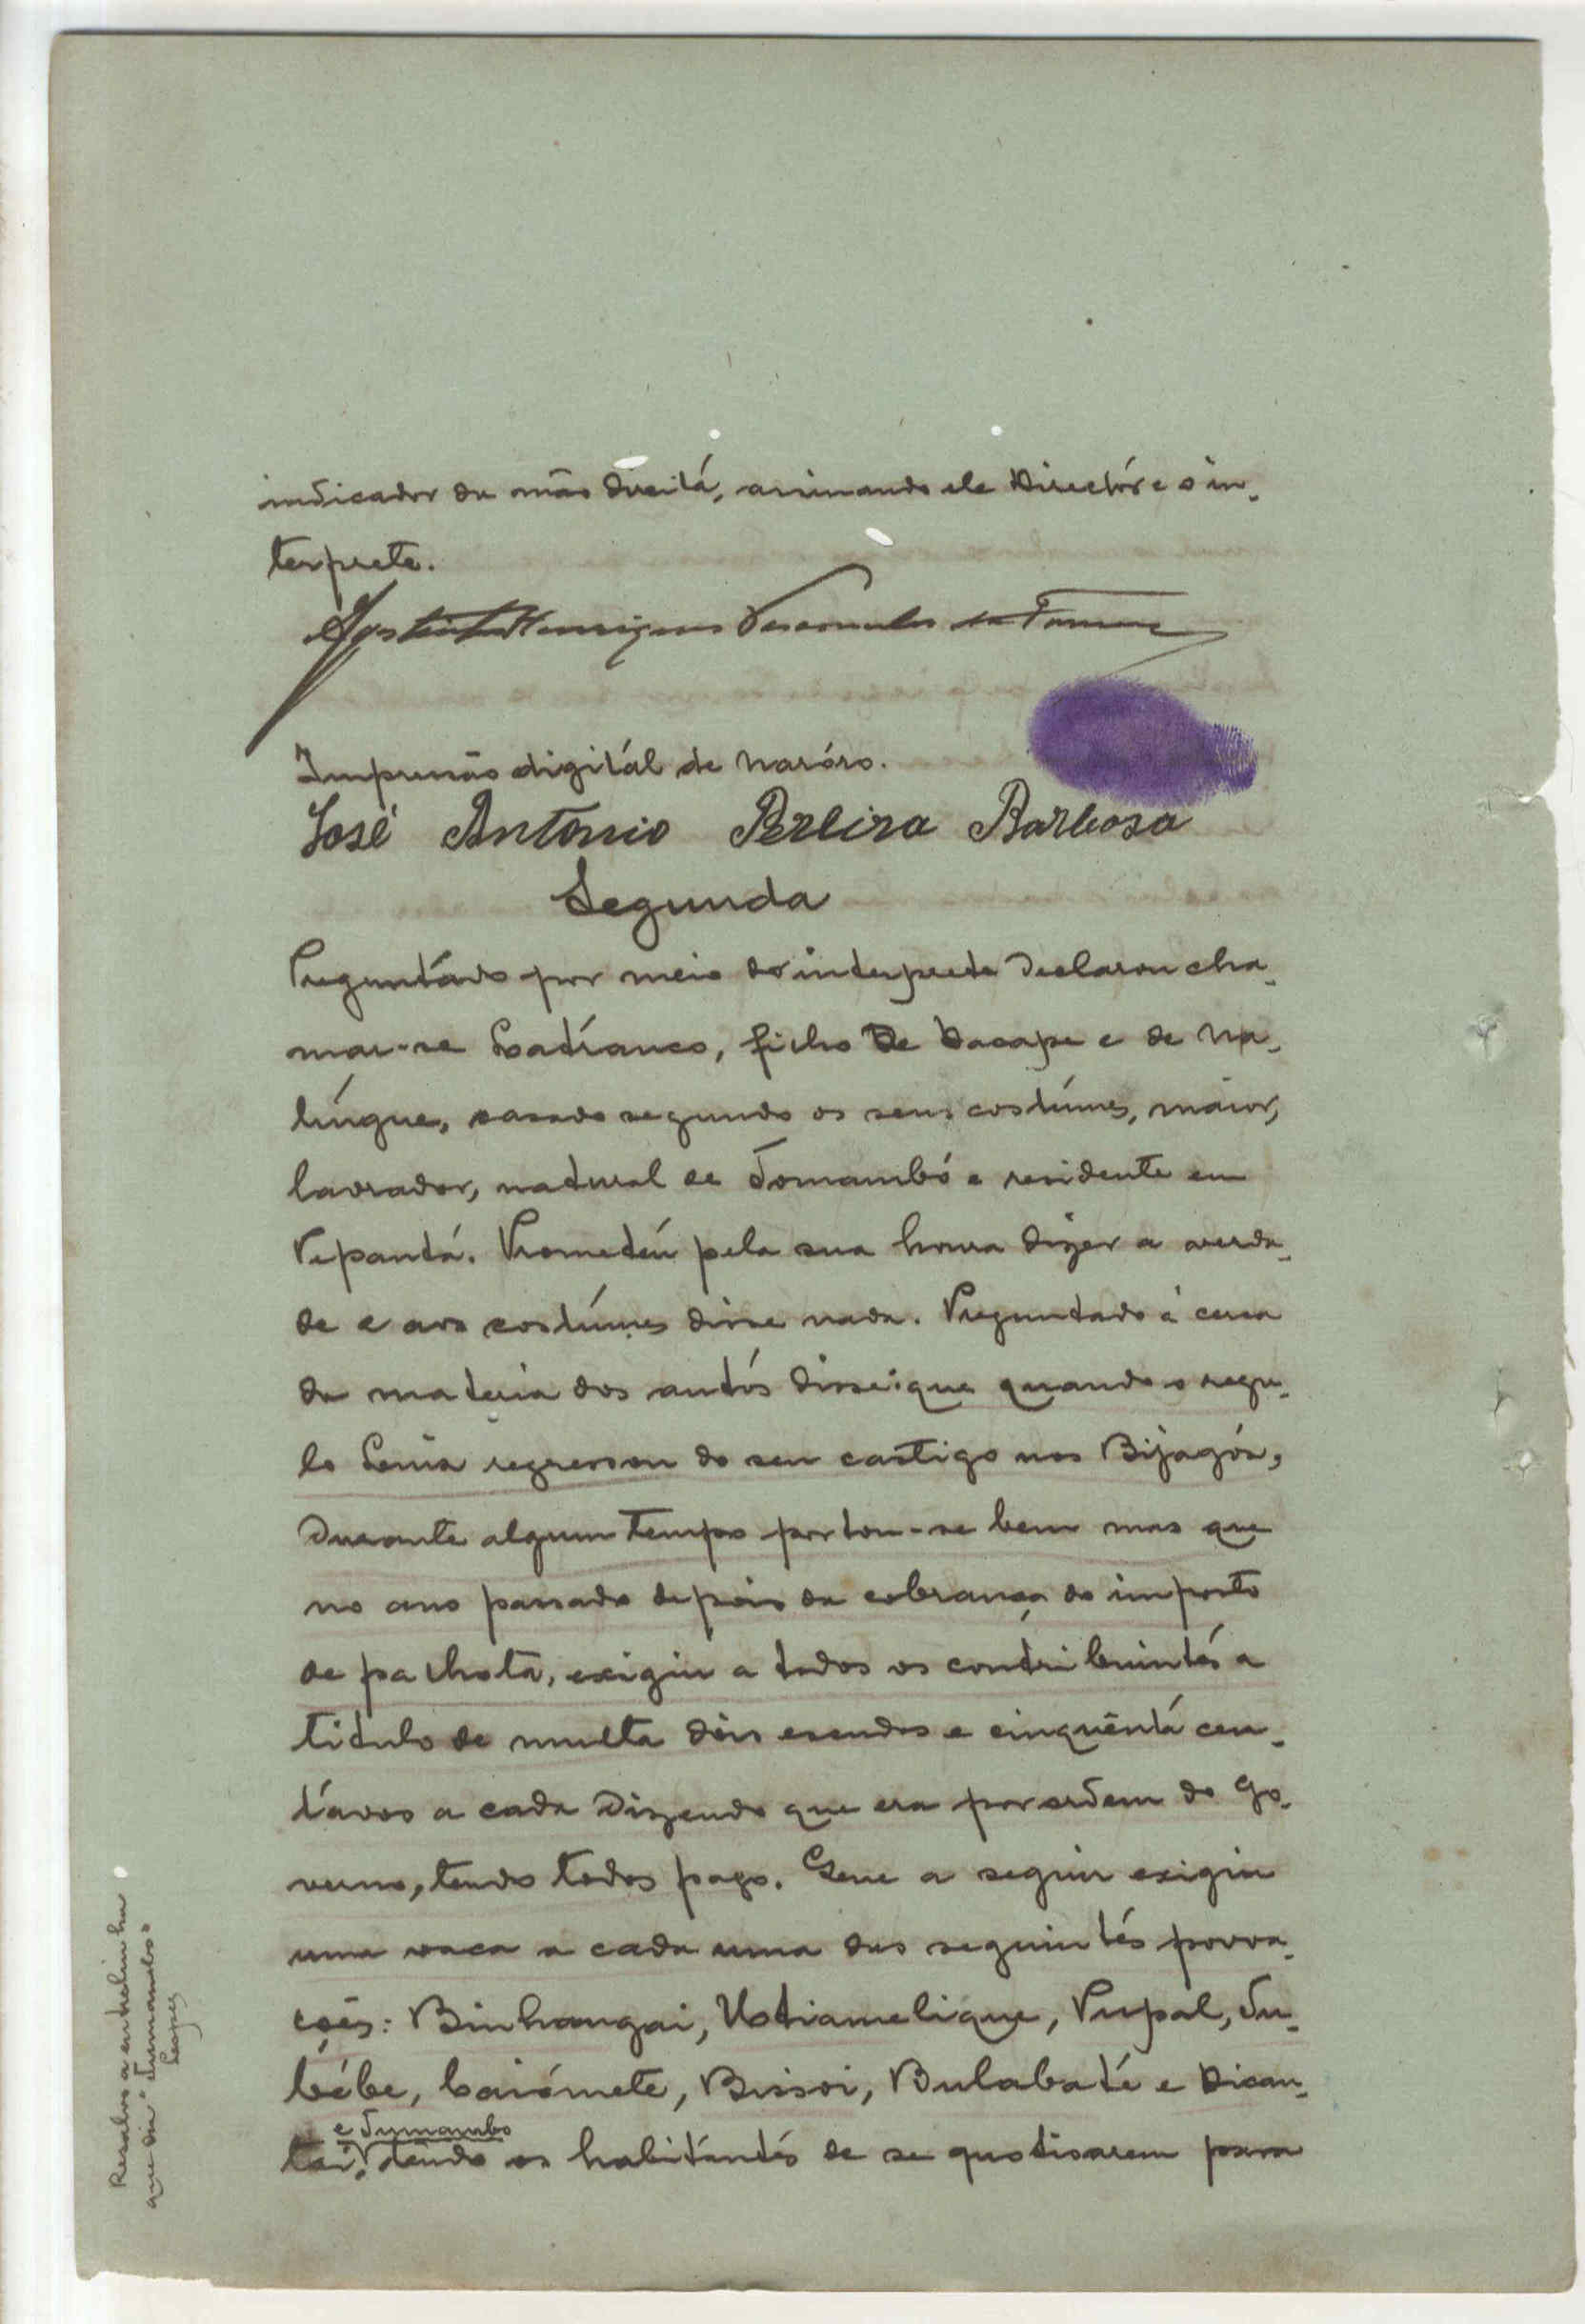 indicador da mão direitá, assinando ele Directór e o in-
terprete.
Agostinho Henriques Vasconcelos da Fonseca
Impressão digitál de Naróro.
José Antonio Pereira Barbosa
Segunda
Preguntádo por meio do interprete declarou cha-
mar-se Loatíanco, filho de Dacape e de Na-
língue, casado segundo os seus costúmes, maior,
lavrador, natural de Tomambó e residente em
Pepantá. Prometeú pela sua honra dizer a verda-
de e aos costúmes disse nada. Preguntado á cerca
da materia dos autós disse: que quando o regu-
lo regressou do seu castigo nos Bijagós,
durante algum tempo portou-se bem mas que
no ano passado depois da cobrança do imposto
de palhota, exigiu a todos os contribuintés a
titulo de multa dois escudos e cinquêntá cen-
távos a cada dizendo que era por ordem do Go-
verno, tendo todos pago. Que a seguir exigiu
uma vaca a cada uma das seguintés povoa-
ções: Binhangai, Utiamelique, Pupal, Tu-
bébe, Caiómete, Bissoi, Bulabaté e Dican-
e Tumambo
tai, tendo os habitántés de se quotisarem para
Resalvo a entrelinha
que diz "e Tumambo"
Lopes